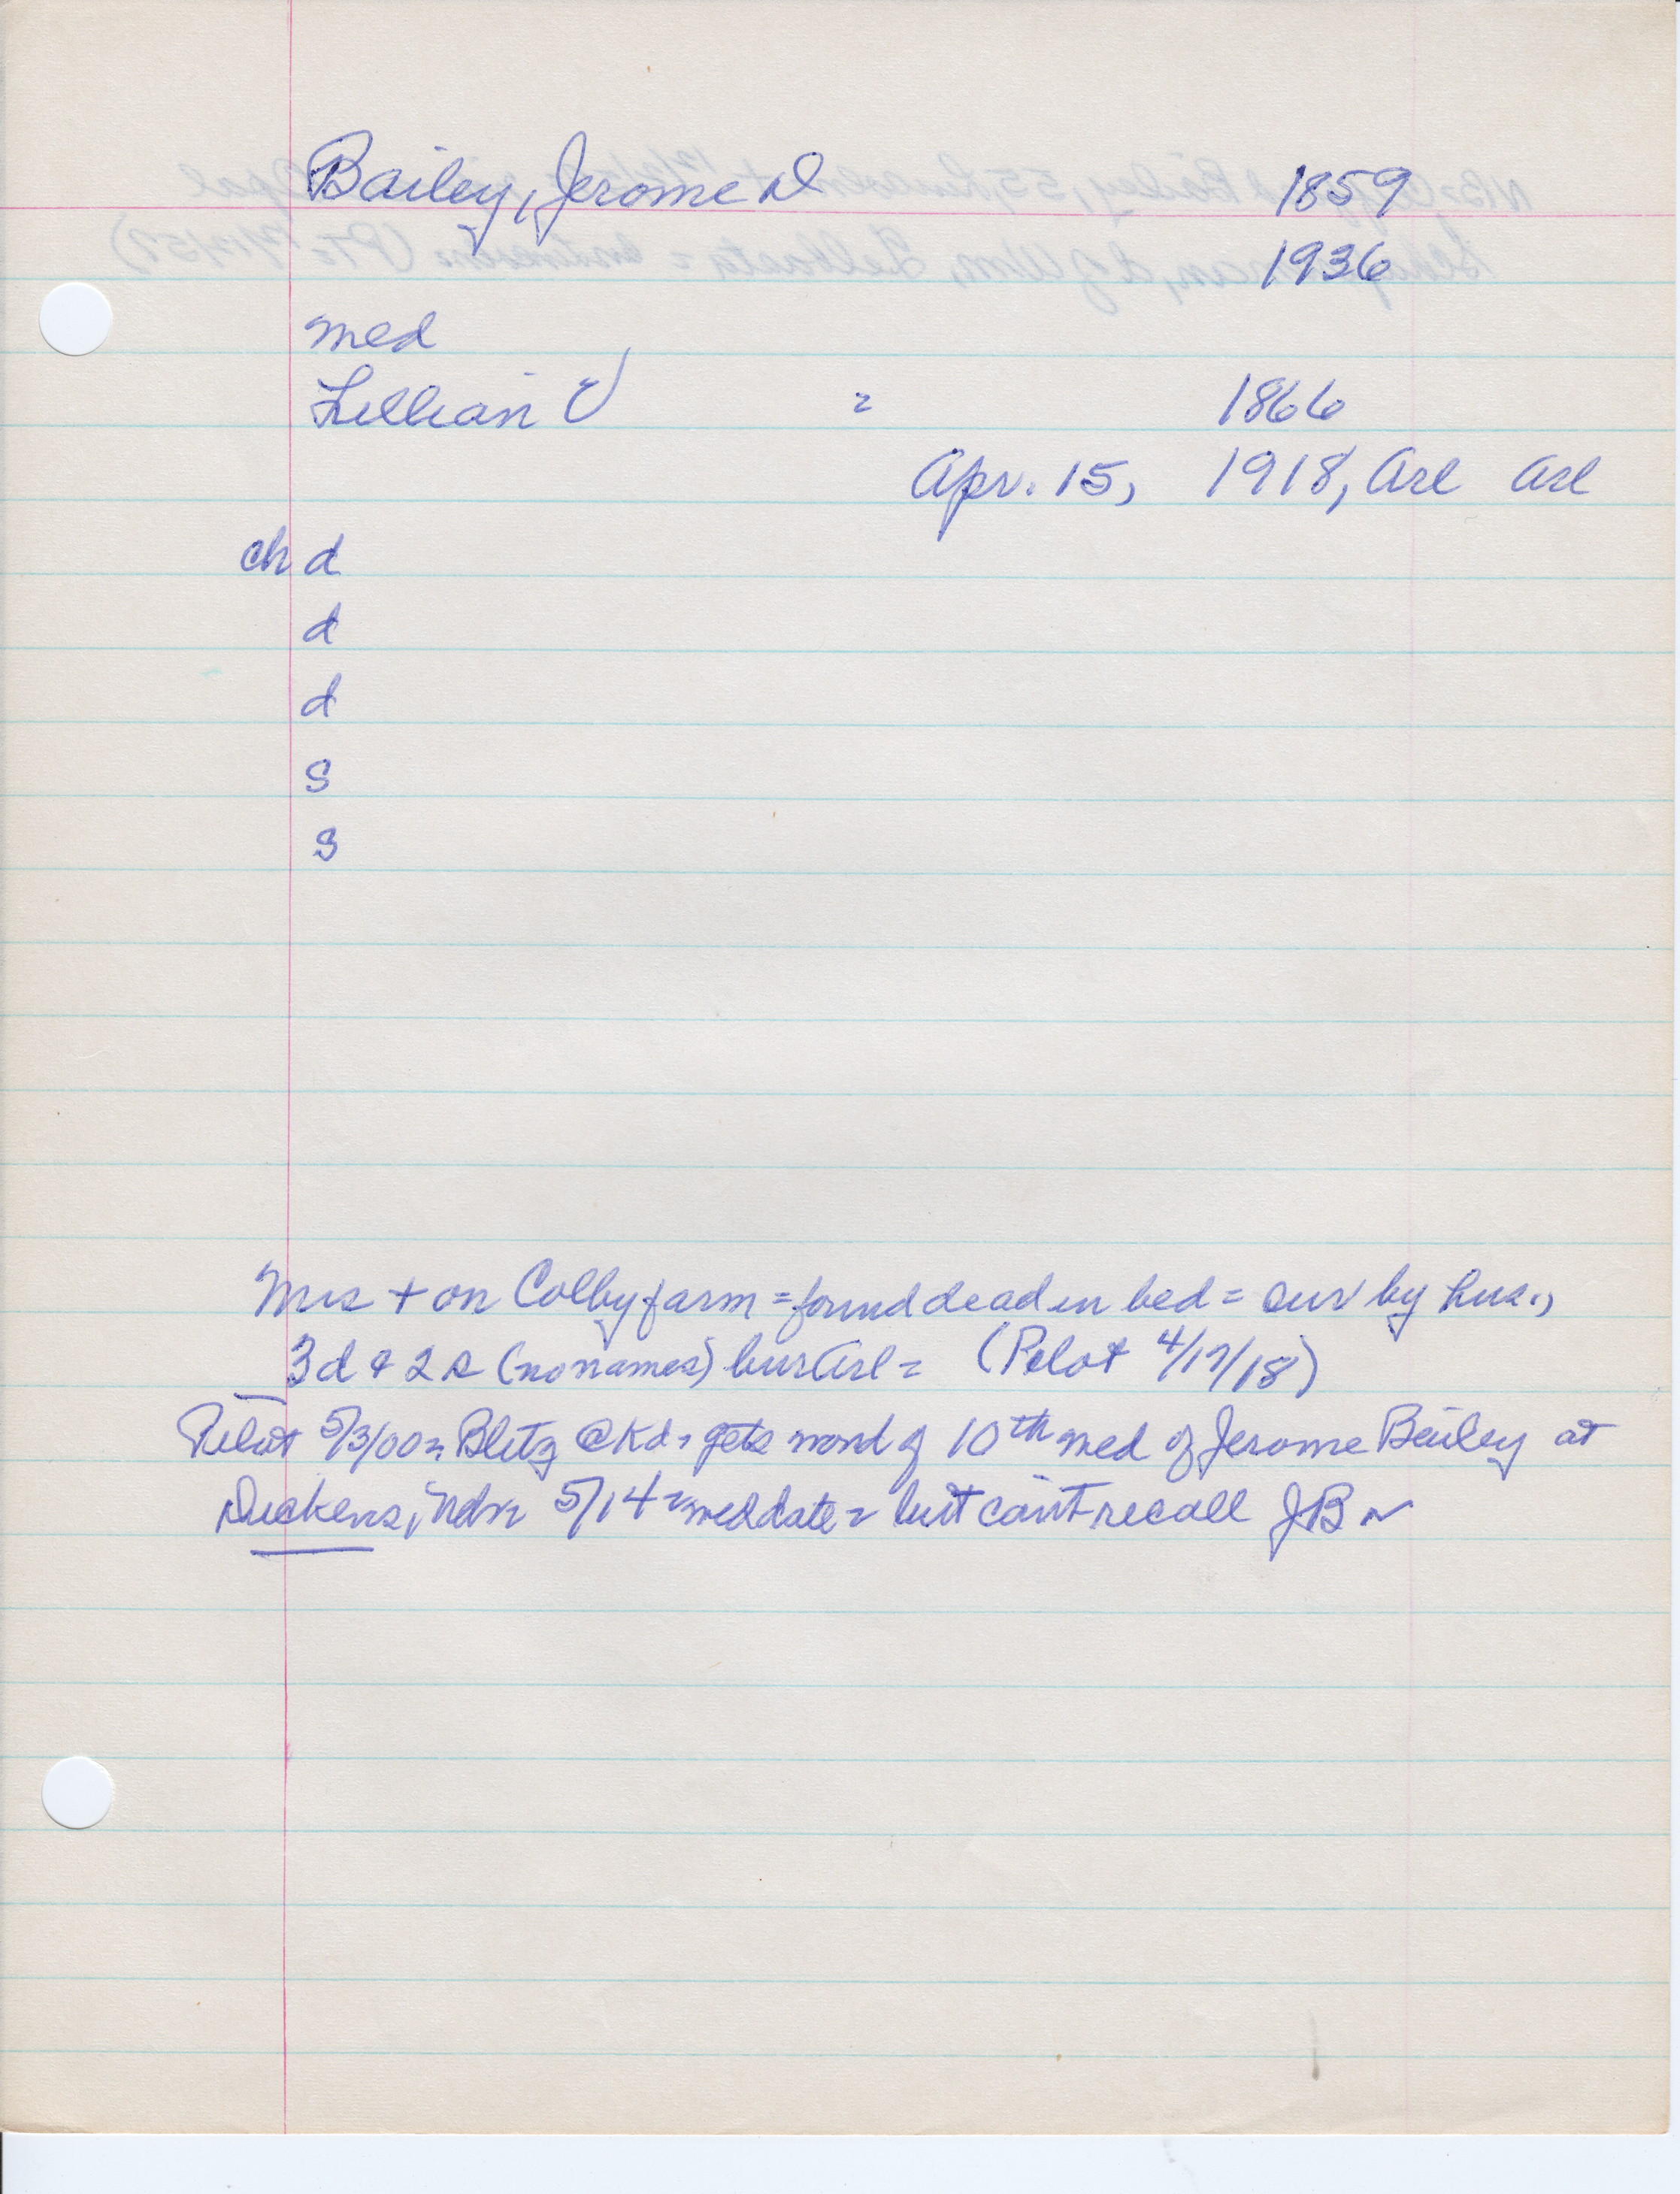 Bailey, Jerome D 1859
1936
med
Lillian V = 1866
Apr. 15, 1918, Arl Arl
ch d
d
d
s
s
Mrs + on Colby farm = found dead in bed = sur by hus.,
3 d & 2 s (no names) bur Arl = (Pilot 4/17/18)
Pilot 5/3/00 = Blitz @ Kd = gets word of 10th med of Jerome Bailey at
Dickens, 5/14 = med date = but can't recall JB